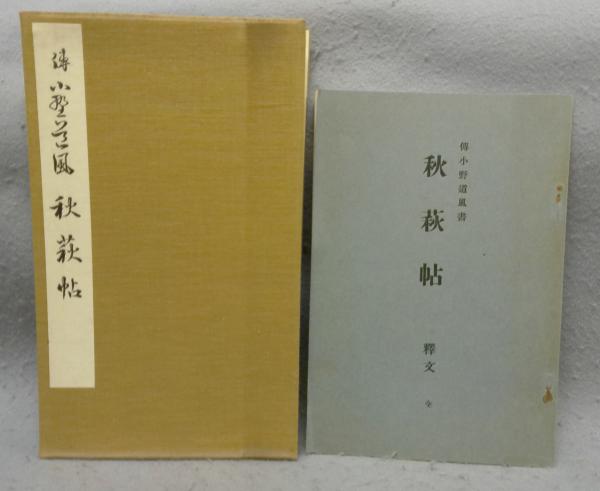 傳 小野道風 秋萩帖
傳小野道風書
秋萩帖
釋文 全